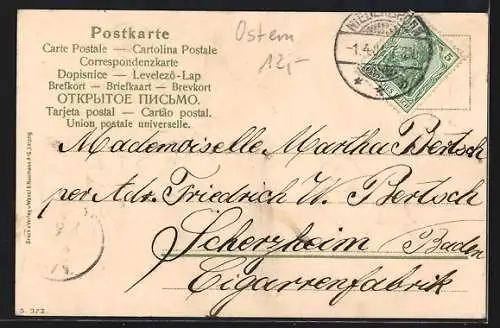 Postkarte
Carte Postale — Cartolina Postale
Correspondenzkarte
Dopisnice — Levelező-Lap
Brefkort — Briefkaart — Brevkort
ОТКРЫТОЕ ПИСЬМО.
Tarjeta postal — Cartão postal.
Union postale universelle.
Ostern
12,-
5
Mademoiselle Martha Bertsch
per Adr. Friedrich W. Bertsch
Scherzheim Baden
Cigarrenfabrik
S. 372